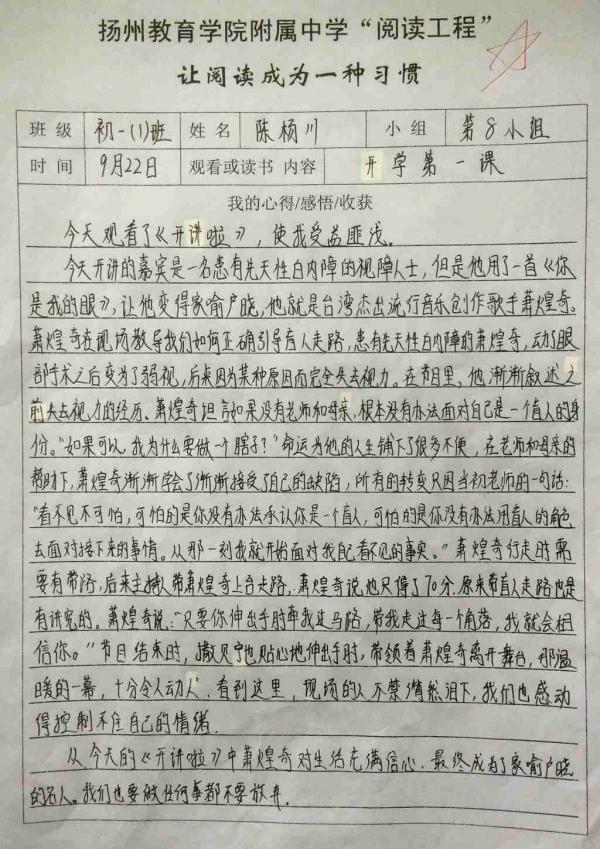 扬州教育学院附属中学“阅读工程”
让阅读成为一种习惯
班 级 初一(1)班 姓 名 陈杨川 小 组 第8小组
时 间 9月22日 观看或读书 内容 开学第一课
我的心得/感悟/收获
今天观看了《开讲啦》，使我受益匪浅。
今天开讲的嘉宾是一名患有先天性白内障的视障人士，但是他用了一首《你
是我的眼》，让他变得家喻户晓，他就是台湾杰出流行音乐创作歌手萧煌奇。
萧煌奇在现场教导我们如何正确引导盲人走路，患有先天性白内障的萧煌奇，动了眼
部手术之后变为了弱视，后来因为某种原因而完全失去视力。在节目里，他渐渐叙述之
前失去视力的经历、萧煌奇坦言如果没有老师和母亲，根本没有办法面对自己是一个盲人的身
份。“如果可以，我为什么要做一个瞎子？”命运为他的人生铺下了很多不便，在老师和母亲的
帮助下，萧煌奇渐渐学会了渐渐接受了自己的缺陷，所有的转变只因当初老师的一句话：
“看不见不可怕，可怕的是你没有办法承认你是一个盲人，可怕的是你没有办法用盲人的角色
去面对接下来的事情。从那一刻我就开始面对我自己看不见的事实。”萧煌奇行走时需
要有带路，后来主持人带萧煌奇上台走路，萧煌奇说他只得了70分，原来带盲人走路也是
有讲究的。萧煌奇说：“只要你伸出手时牵我过马路，带我走过每一个角落，我就会相
信你。”节目结束时，撒贝宁也贴心地伸出手肘，带领着萧煌奇离开舞台，那温
暖的一幕，十分令人动人，看到这里，现场的人不禁潸然泪下，我们也感动
得控制不住自己的情绪.
从今天的《开讲啦》中萧煌奇对生活充满信心，最终成为了家喻户晓
的名人。我们也要做任何事都不要放弃.